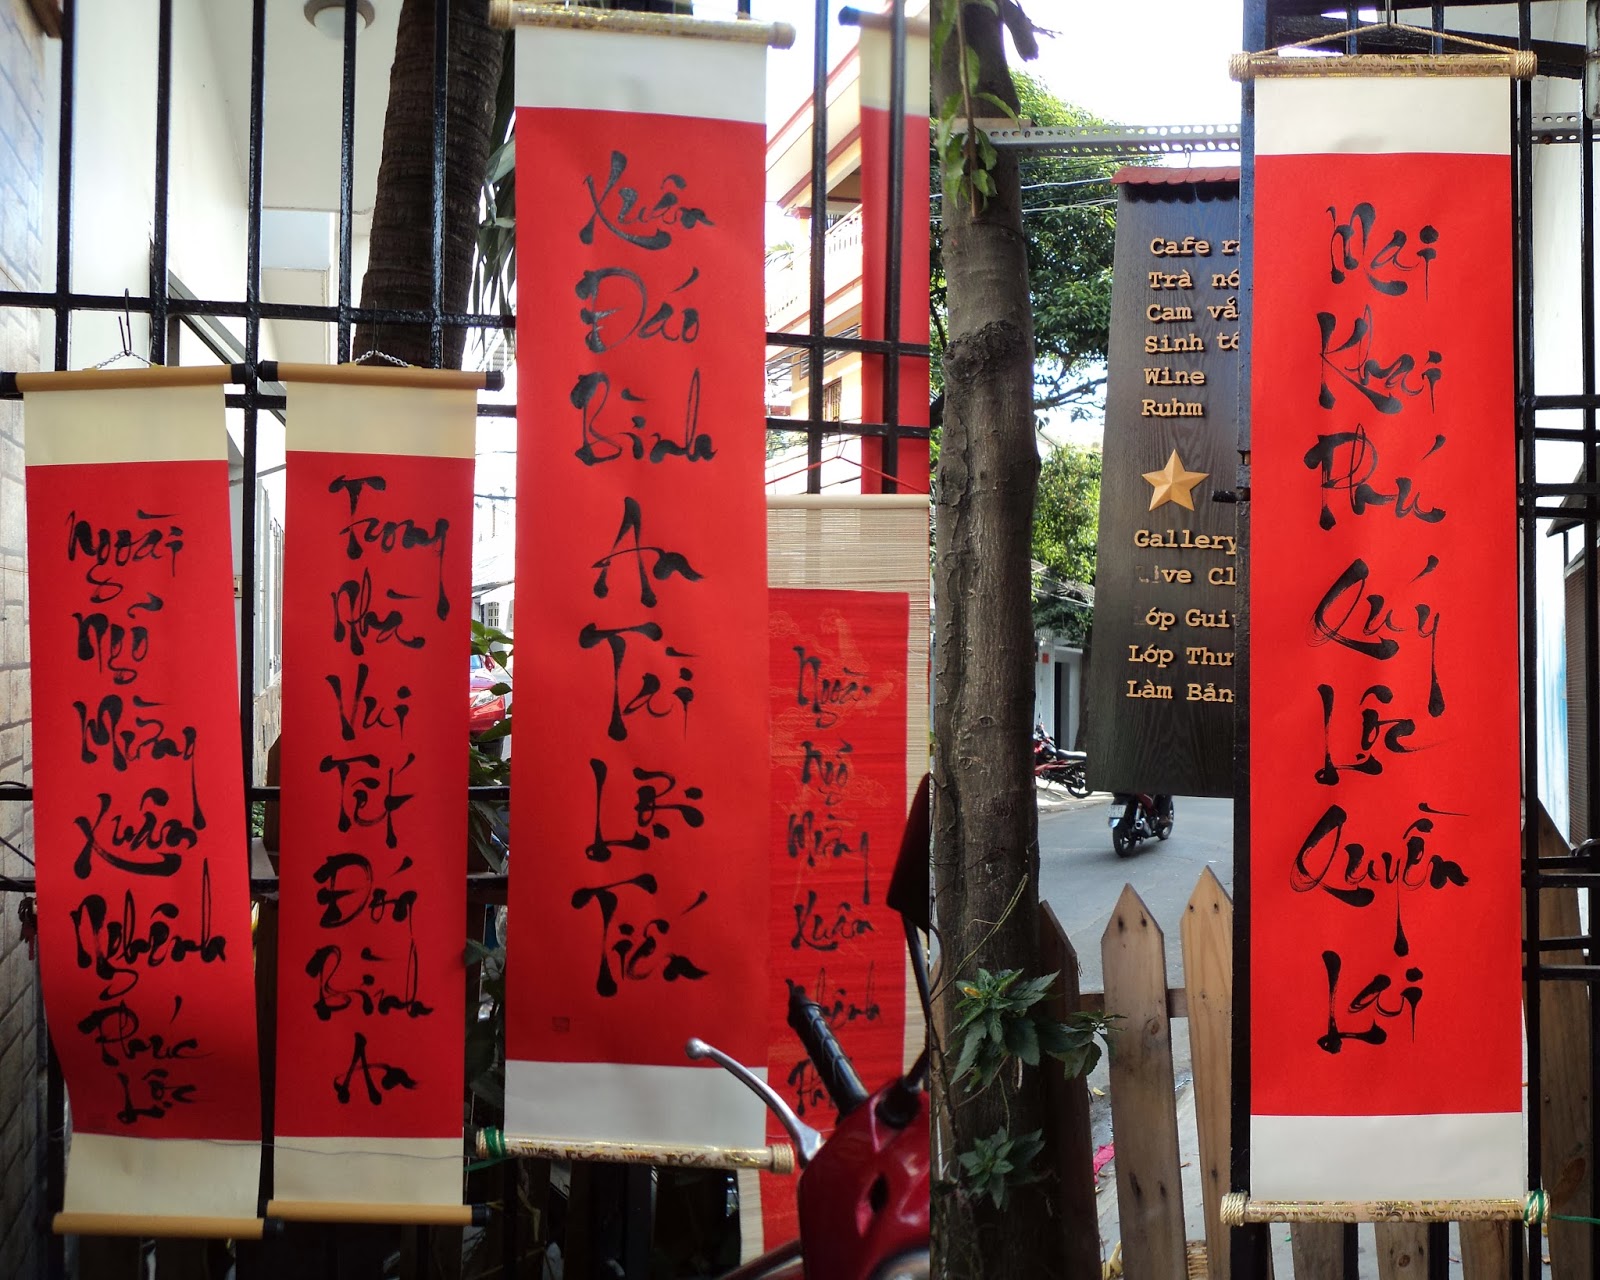 Ngoài
Ngõ
Mừng
Xuân
Nghênh
Phúc
Lộc
Trong
Nhà
Vui
Tết
Đón
Bình
An
Xuân
Đáo
Bình
An
Tài
Lợi
Tiến
Ngoài
Ngõ
Mừng
Xuân
Nghênh
Cafe
Trà
Cam
Sinh tố
Wine
Ruhm
Gallery
Lớp
Làm Bản
Mai
Khai
Phú
Quý
Lộc
Quyền
Lai